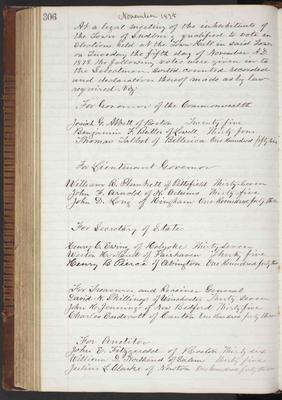 306
November 1878
At a legal meeting of the inhabitants of
the Town of Sudbury, qualified to vote in
Elections held at the Town Hall in said Town
on Tuesday the fifth day of November A.D.
1878 the following votes were given in to
the Selectmen. Sorted counted recorded
and declaration thereof made as by law
required. Viz:
For Governor of the Commonwealth
Josiah G. Abbott of Boston Twenty five
Benjamin F. Butler of Lowell Thirty four
Thomas Talbot of Billerica One hundred fifty
For Lieutenant Governor
William R. Plunkett of Pittsfield Thirty Seven
John F. Arnold of No Adams Thirty five
John D. Long of Hingham One hundred forty
For Secretary of State
Henry C. Ewing of Holyoke Thirty seven
Weston Howland of Fairhaven Thirty five
Henry B. Peirce of Abington One hundred forty
For Treasurer and Receiver General
David N. Skillings of Winchester Thirty Seven
John B. Jennings of New Bedford Thirty five
Charles Endicott of Canton One hundred forty
For Auditor
John E. Fitzgerald of Boston Thirty six
William D. Northend of Salem Thirty five
Julius L. Clarke of Newton One hundred forty